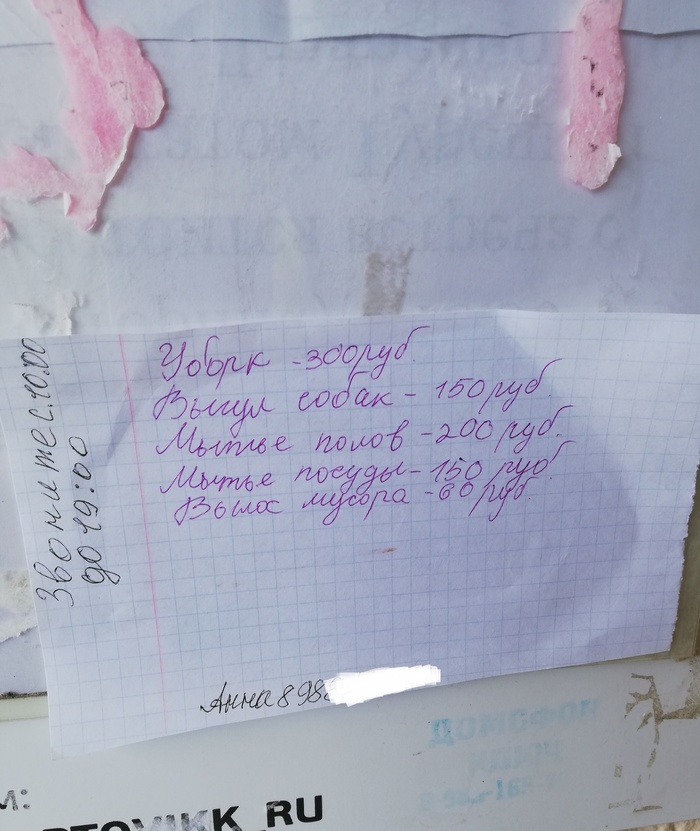 Уборк - 300 руб.
Выгул собак - 150 руб.
Мытье полов - 200 руб.
Мытье посуды - 150 руб.
Вынос мусора - 60 руб
Звоните с 10.00
до 19:00
Анна 8 98
ДОМОФОН
_RU